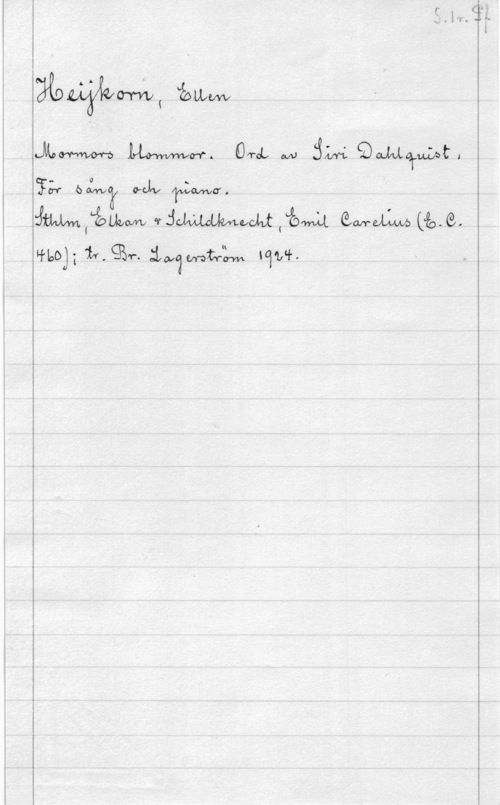 S. 1r. Pf
Heijkorn, Ellen
Mormors blommor. Ord av Siri Dahlquist.
För sång och piano.
Sthlm, Elkan & Schildknecht, Emil Carelius (E. C.
460); tr. Br. Lagerström 1924.